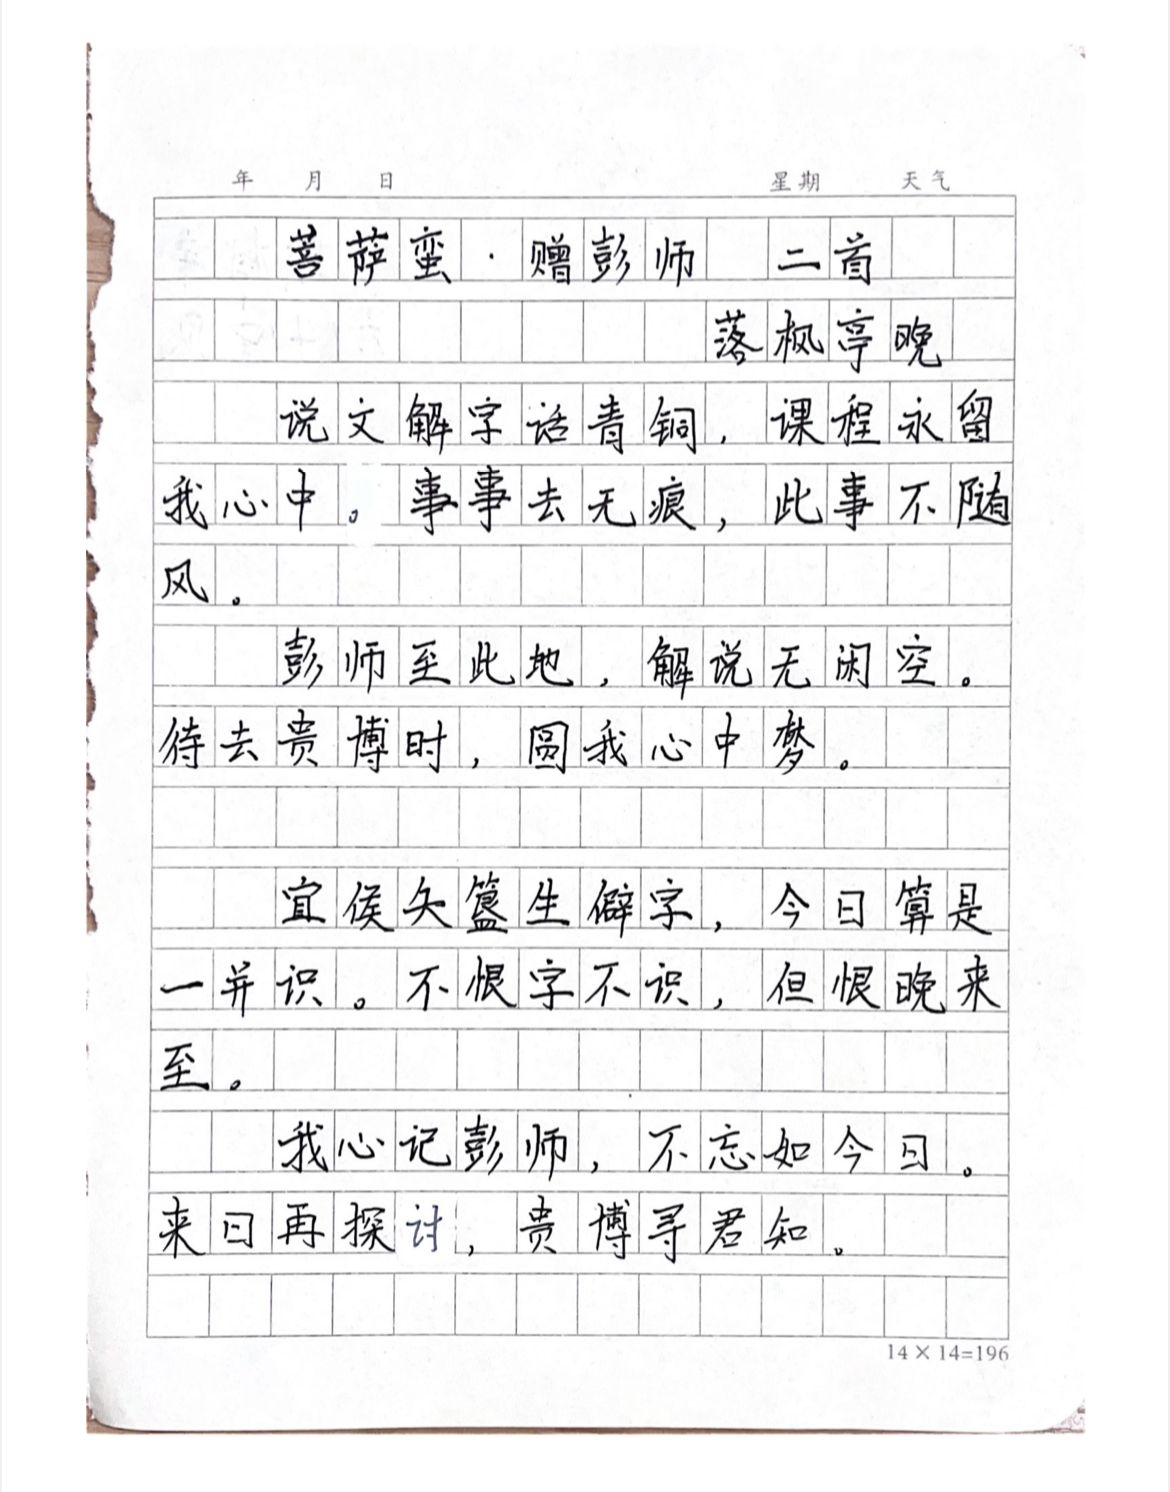 年 月 日 星期 天气
菩萨蛮·赠彭师 二首
落枫亭晚
说文解字话青铜,课程永留
我心中。事事去无痕,此事不随
风。
彭师至此地,解说无闲空。
待去贵博时,圆我心中梦。
宜侯夨簋生僻字,今日算是
一并识。不恨字不识,但恨晚来
至。
我心记彭师,不忘如今日。
来日再探讨,贵博寻君知。
14×14=196